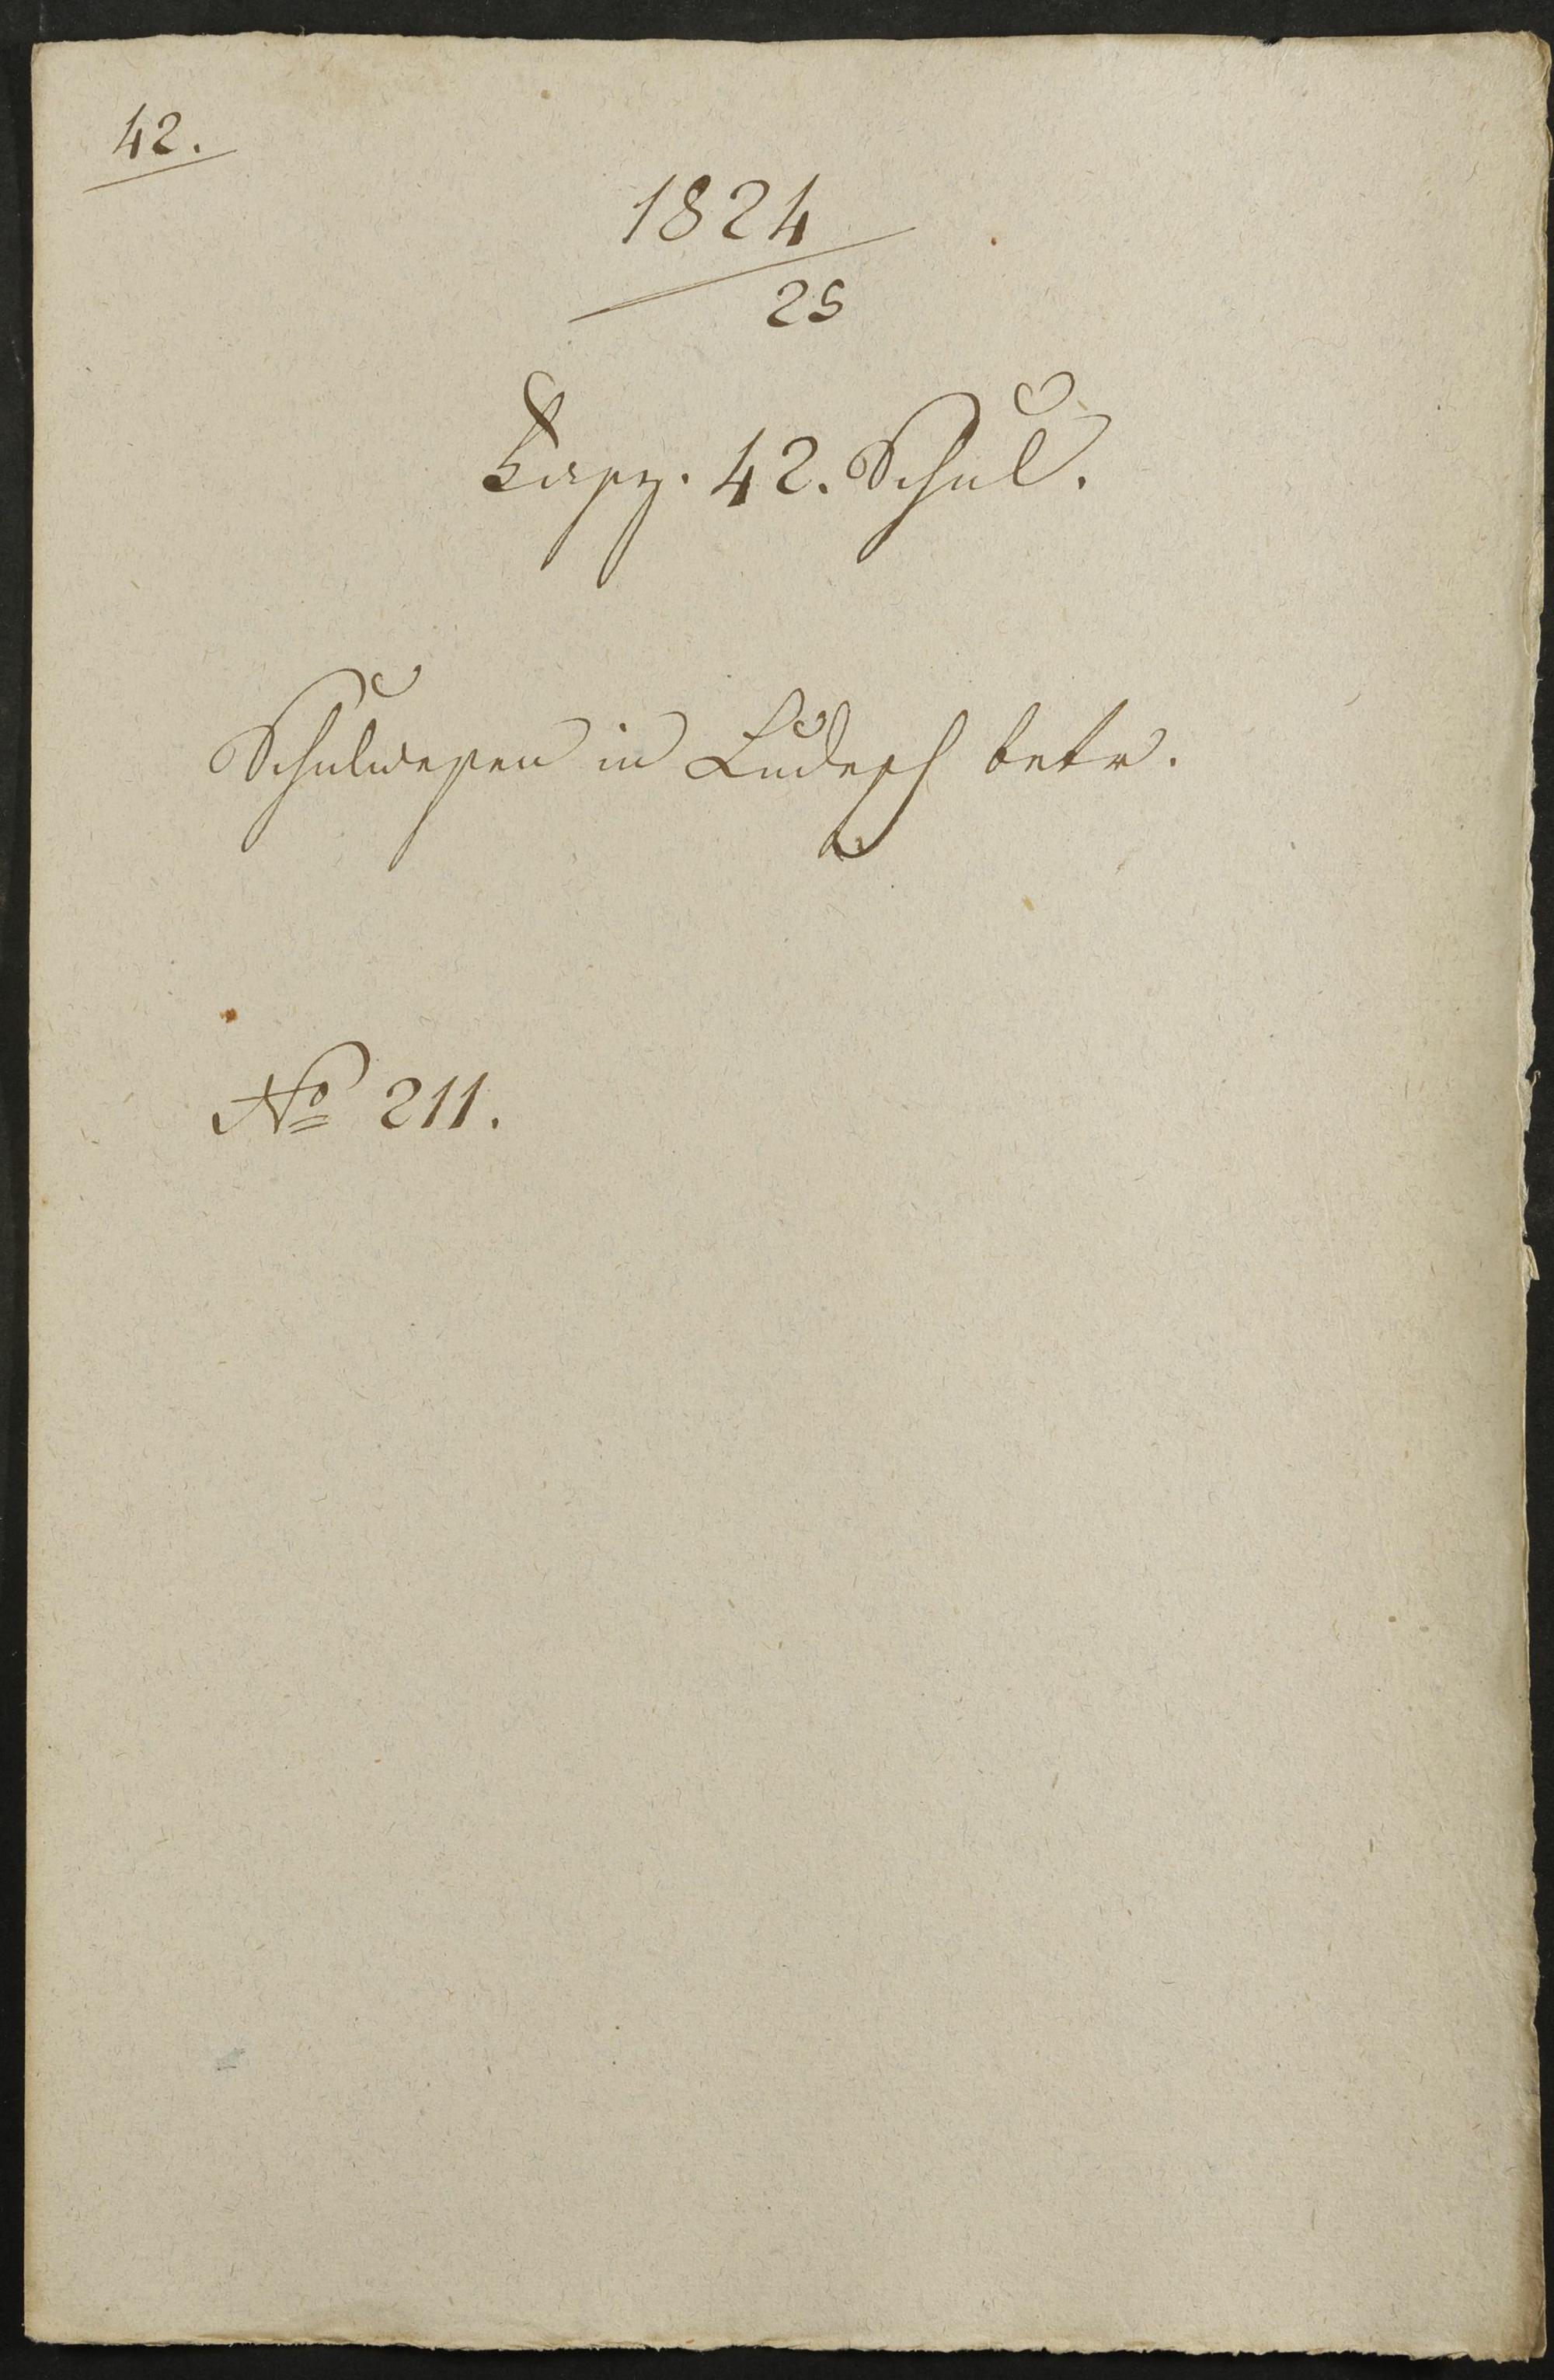 42.
1824
25
42. Schul.
Schulwesen in Ludesch betr.
No 211.